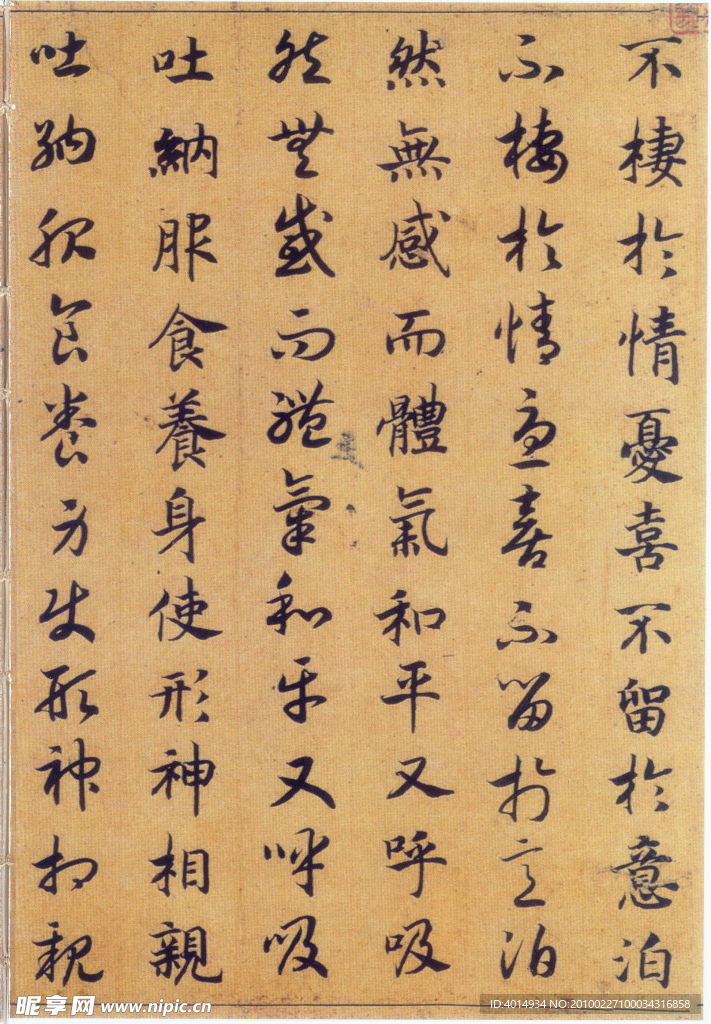 不棲於情憂喜不留於意泊
不棲於情憂喜不留於意泊
然無感而體氣和平又呼吸
然無感而體氣和平又呼吸
吐納服食養身使形神相親
吐納服食養身使形神相親
昵享网 www.nipic.cn
ID:4014934 NO:20100227100034316858